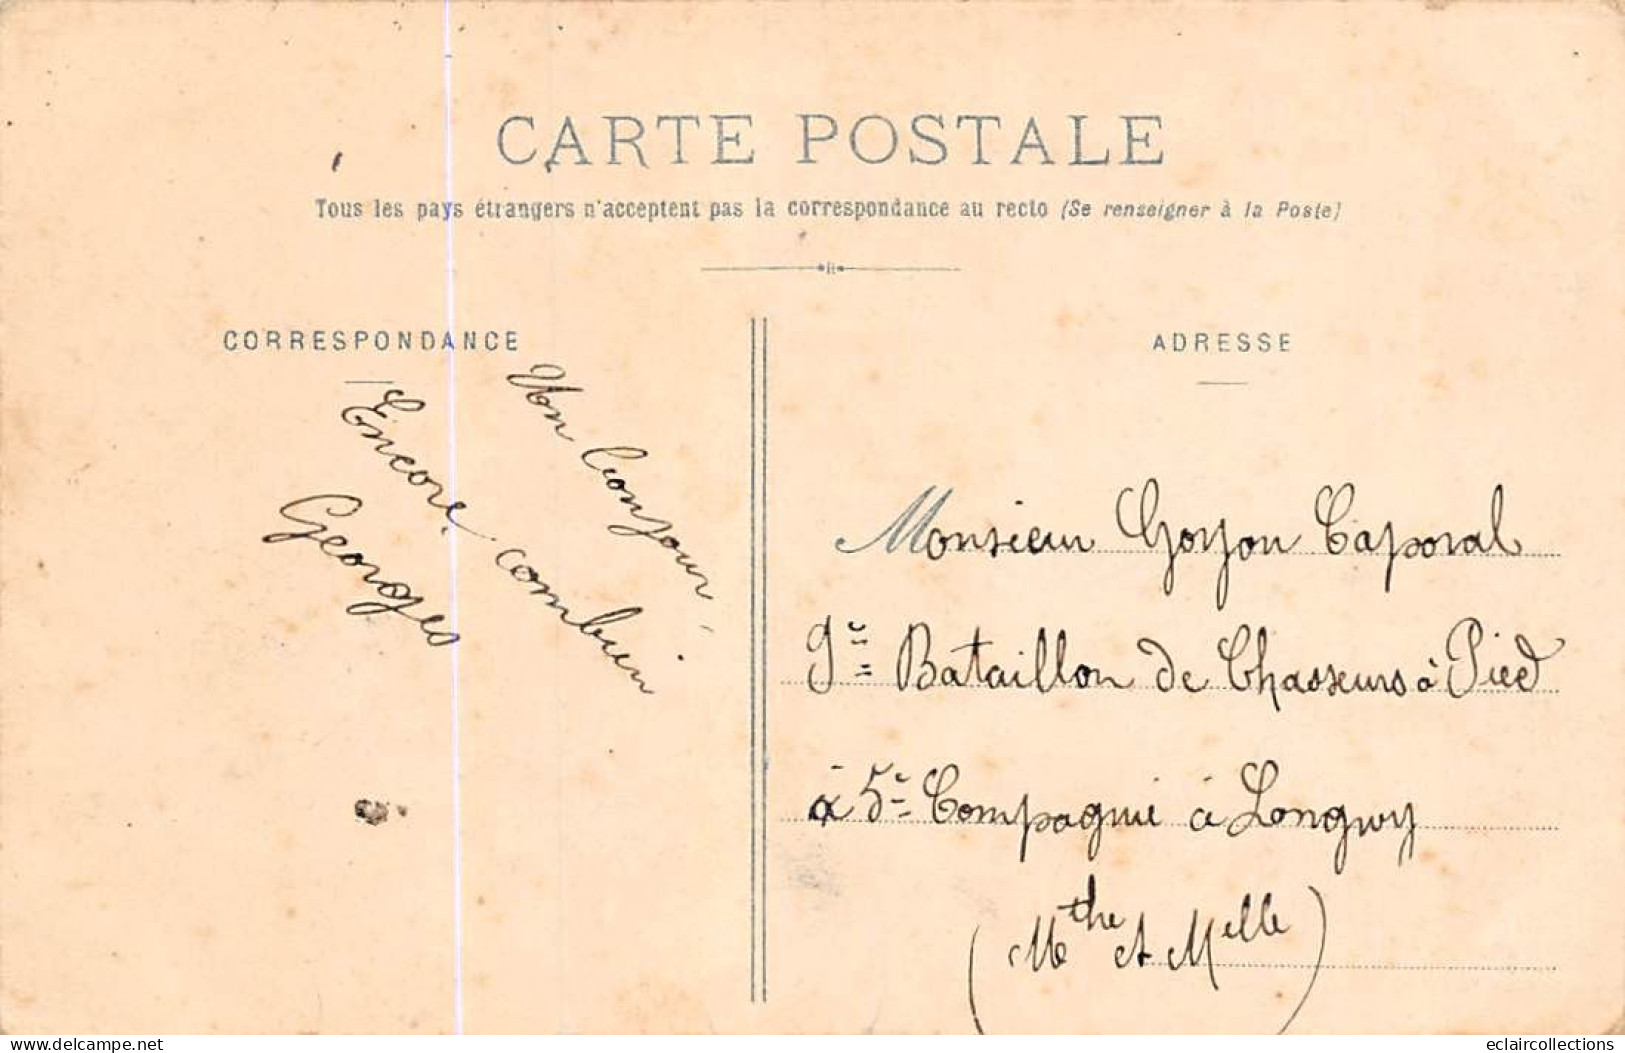 CARTE POSTALE
Tous les pays étrangers n'acceptent pas la correspondance au recto (Se renseigner à la Poste)
CORRESPONDANCE
Un bonjour
Encore combien
Georges
ADRESSE
Monsieur Goyon Caporal
9e Bataillon de Chasseurs à Pied
à 5e Compagnie à Longwy
(Mthe et Melle)
delcampe.net
eclaircollections